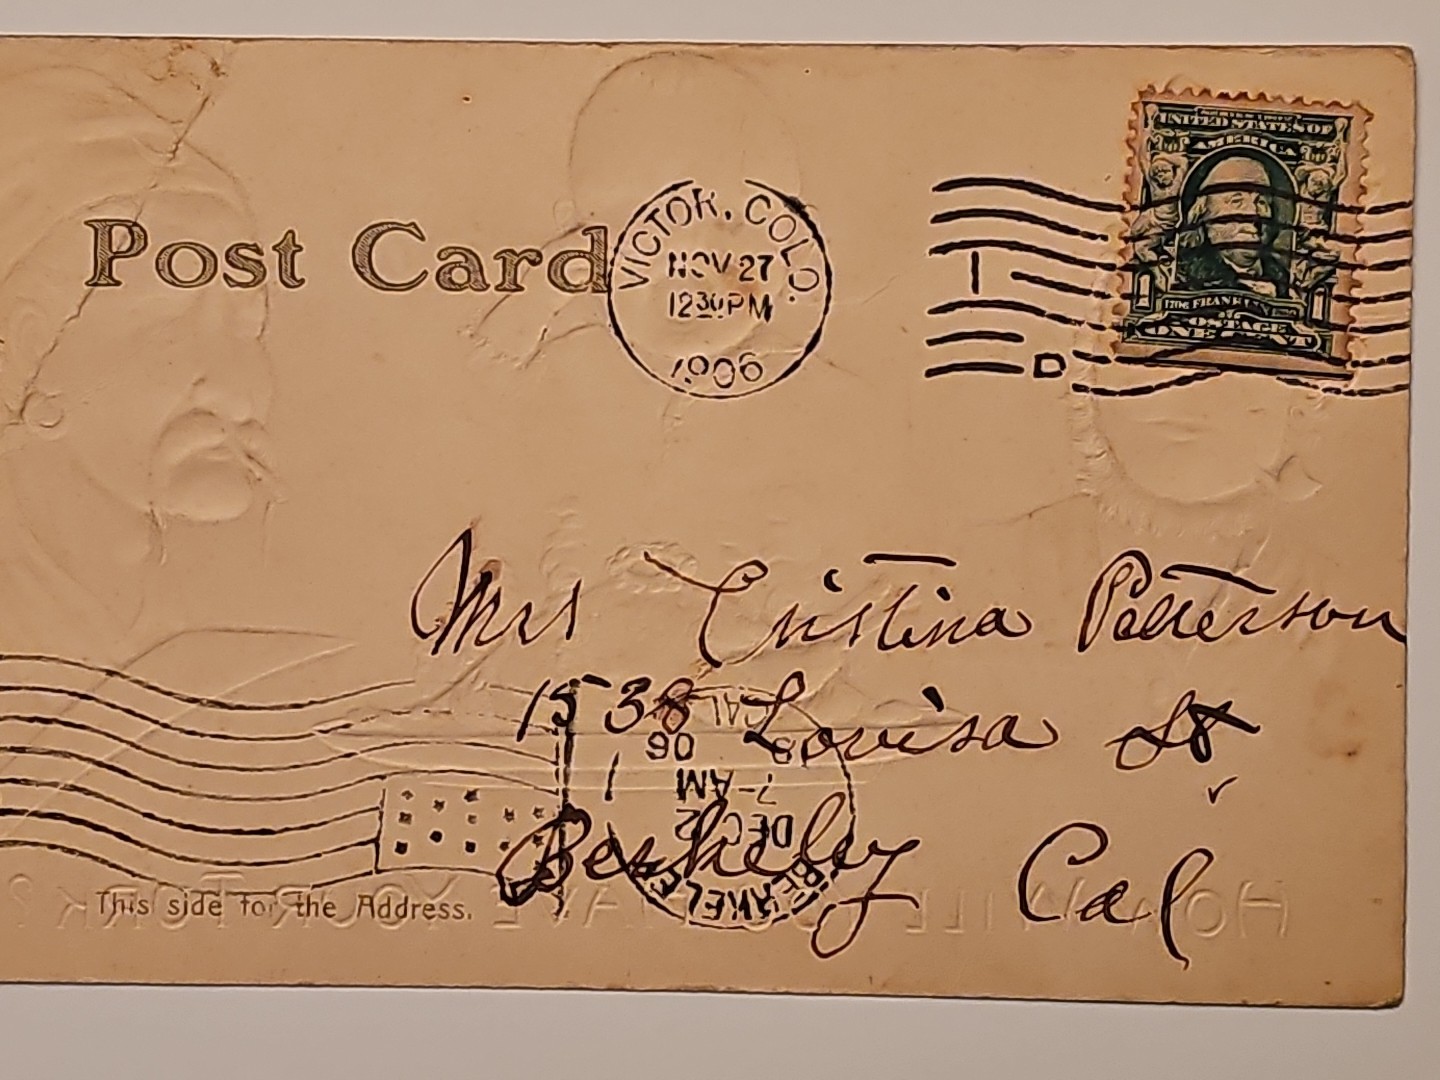 Post Card
VICTOR, COLO.
NOV 27
12 30 PM
1906
I
D
UNITED STATES OF
AMERICA
1
1
1706 FRANKLIN
POSTAGE
ONE CENT
Mrs Cristina Petterson
1538 Lovisa St
Berkeley Cal
BERKELEY
CAL
DEC 2
7-AM
06
This side for the Address.
HOW WILL YOU HAVE YOUR TURK?